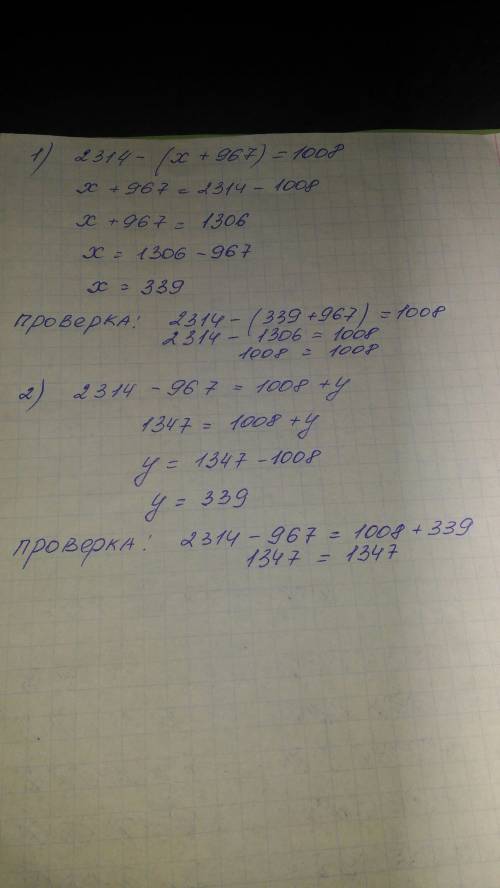 1) 2314 - (x + 967) = 1008
x + 967 = 2314 - 1008
x + 967 = 1306
x = 1306 - 967
x = 339
проверка: 2314 - (339 + 967) = 1008
2314 - 1306 = 1008
1008 = 1008
2) 2314 - 967 = 1008 + y
1347 = 1008 + y
y = 1347 - 1008
y = 339
проверка: 2314 - 967 = 1008 + 339
1347 = 1347